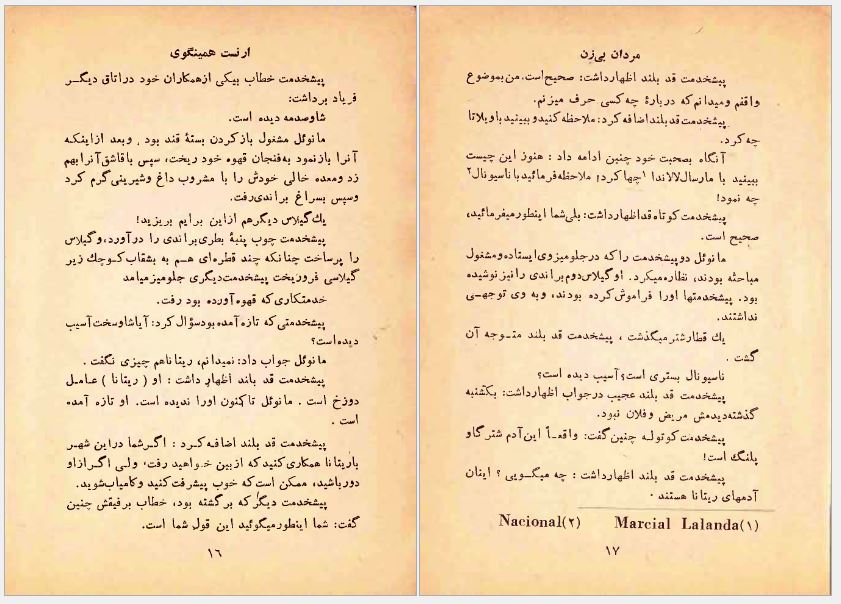 ارنست همینگوی
پیشخدمت خطاب بیکی ازهمکاران خود دراتاق دیگـر
فریاد برداشت:
شاوصدمه دیده است.
مانوئل مشغول بازکردن بستهٔ قند بود . وبعد ازاینکـه
آنرا بازنمود به‌فنجان قهوه خود ریخت، سپس باقاشق‌آنرابهم
زد ومعده خالی خودش را با مشروب داغ وشیرینی گرم کرد
وسپس بسراغ براندی‌رفت.
یك گیلاس دیگرهم ازاین برایم بریزید!
پیشخدمت چوب پنبهٔ بطری‌براندی را درآورد،وگیلاس
را پرساخت چنانکه چند قطره‌ای هـم به بشقاب‌کـوچك زیر
گیلاسی فروریخت پیشخدمت‌دیگری جلومیزمیامد
خدمتکاری‌که قهوه‌آورده بود رفت.
پیشخدمتی که تازه آمده‌بودسؤال کرد: آیاشاوسخت‌آسیب
دیده‌است؟
مانوئل جواب داد: نمیدانم، ریتاناهم چیزی نگفت .
پیشخدمت قد بلند اظهار داشت : او ( ریتانا ) عـامـل
دوزخ است . مانوئل تاکنون اورا ندیده است. او تازه آمده
است .
پیشخدمت قد بلند اضافـه‌کـرد : اگـرشما دراین شهـر
باریتانا همکاری کنید که ازبین خـواهید رفت، ولـی اگـرازاو
دورباشید، ممکن است‌که خوب پیشرفت‌کنید وکامیاب‌شوید.
پیشخدمت دیگر که برگشته بود، خطاب برفیقش چنین
گفت: شما اینطورمیگوئید این قول شما است.
۱٦
مردان بی‌زن
پیشخدمت قد بلند اظهارداشت: صحیح‌است.من‌بموضوع
واقفم ومیدانم‌که دربارهٔ چه‌کسی حرف میزنم.
پیشخدمت‌قدبلنداضافه‌کرد:ملاحظه‌کنیدوببینیدباویلاتا
چه‌کرد.
آنگاه بصحبت خود چنین ادامه داد : هنوز این چیست
ببینید با مارسال‌لالاندا ۱چها کرد! ملاحظه‌فرمائیدباناسیونال۲
چه نمود!
پیشخدمت‌کوتاه‌قداظهارداشت: بلی‌شما اینطورمیفرمائید،
صحیح است.
مانوئل دوپیشخدمت را‌که درجلومیزوی‌ایستاده‌ومشغول
مباحثه بودند، نظاره‌میکرد. اوگیلاس‌دوم‌براندی رانیزنوشیده
بود. پیشخدمتها اورا فراموش‌کرده بودند، وبه وی توجهـی
نداشتند.
یك قطارشترمیگذشت ، پیشخدمت قد بلند متـوجه آن
گشت .
ناسیونال بستری است؟آسیب دیده است؟
پیشخدمت قد بلند عجیب درجواب اظهارداشت: یکشنبه
گذشته‌دیدمش مریض وفلان نبود.
پیشخدمت‌کوتولـه چنین‌گفت: واقعـاً این‌آدم شترگاو
پلنگ است!
پیشخدمت قد بلند اظهارداشت : چه میگـویی ؟ اینان
آدمهای ریتانا هستند .
(۱)Marcial Lalanda (۲)Nacional
۱۷